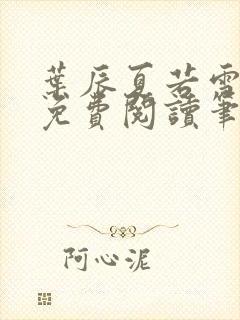 葉辰夏若雪
免費閱讀筆
阿心泥